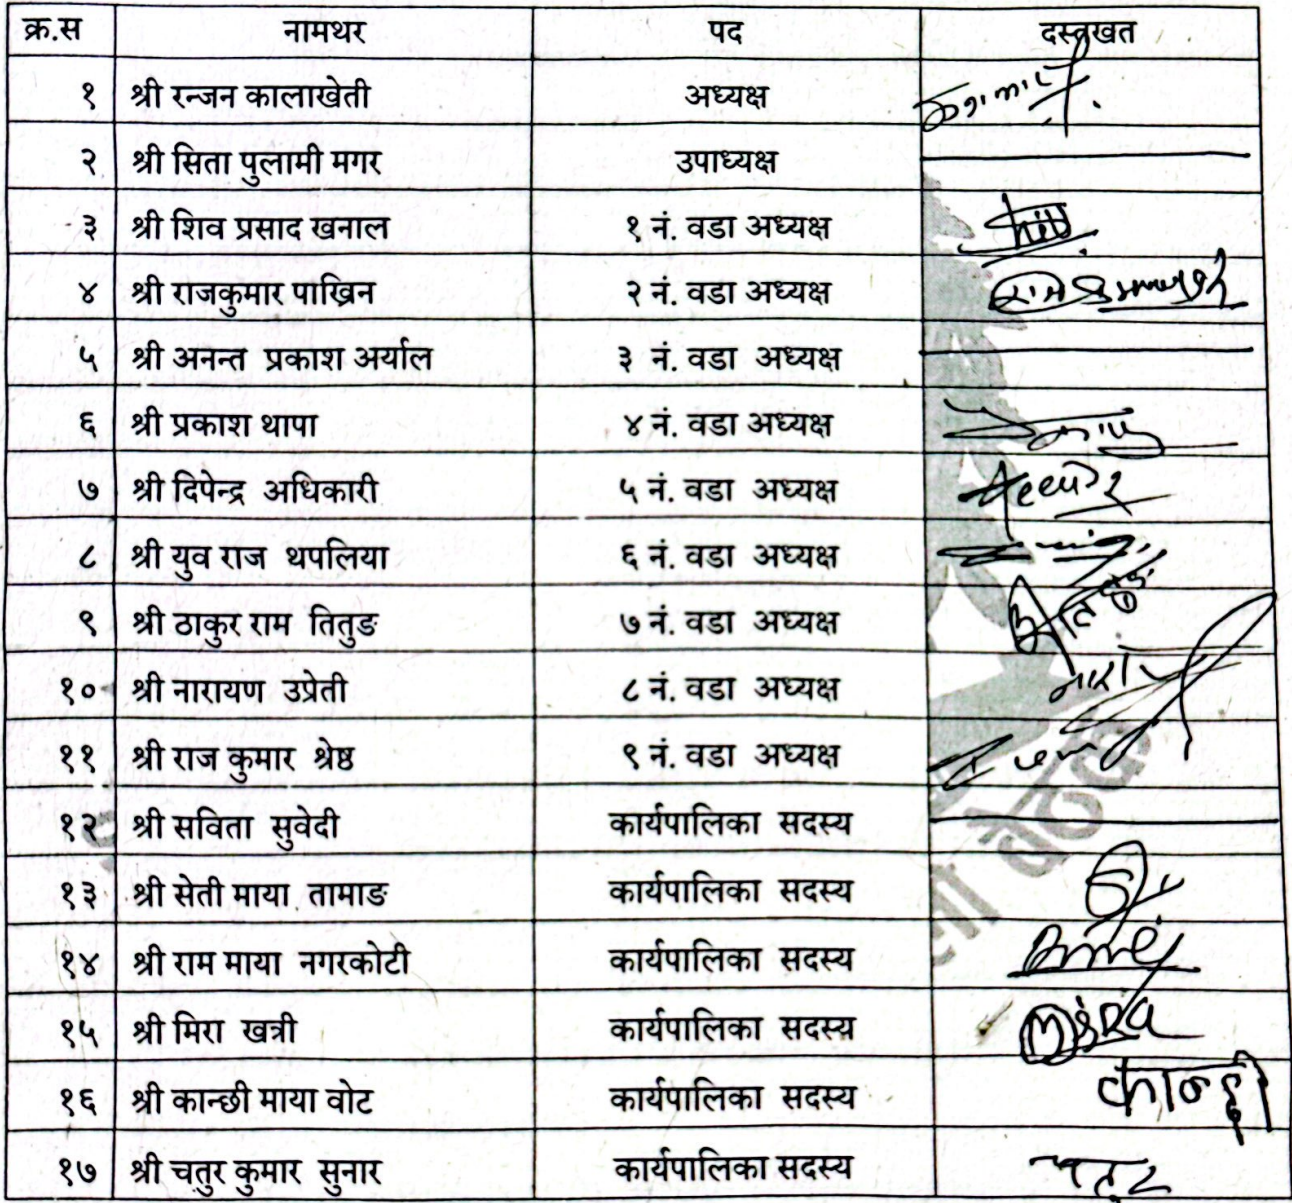 क्र.स नामथर पद दस्तखत
१ श्री रन्जन कालाखेती अध्यक्ष
२ श्री सिता पुलामी मगर उपाध्यक्ष
३ श्री शिव प्रसाद खनाल १ नं. वडा अध्यक्ष
४ श्री राजकुमार पाख्रिन २ नं. वडा अध्यक्ष
५ श्री अनन्त प्रकाश अर्याल ३ नं. वडा अध्यक्ष
६ श्री प्रकाश थापा ४ नं. वडा अध्यक्ष
७ श्री दिपेन्द्र अधिकारी ५ नं. वडा अध्यक्ष
८ श्री युव राज थपलिया ६ नं. वडा अध्यक्ष
९ श्री ठाकुर राम तितुङ ७ नं. वडा अध्यक्ष
१० श्री नारायण उप्रेती ८ नं. वडा अध्यक्ष
११ श्री राज कुमार श्रेष्ठ ९ नं. वडा अध्यक्ष
१२ श्री सविता सुवेदी कार्यपालिका सदस्य
१३ श्री सेती माया तामाङ कार्यपालिका सदस्य
१४ श्री राम माया नगरकोटी कार्यपालिका सदस्य
१५ श्री मिरा खत्री कार्यपालिका सदस्य
१६ श्री कान्छी माया वोट कार्यपालिका सदस्य कान्छी
१७ श्री चतुर कुमार सुनार कार्यपालिका सदस्य चतुर